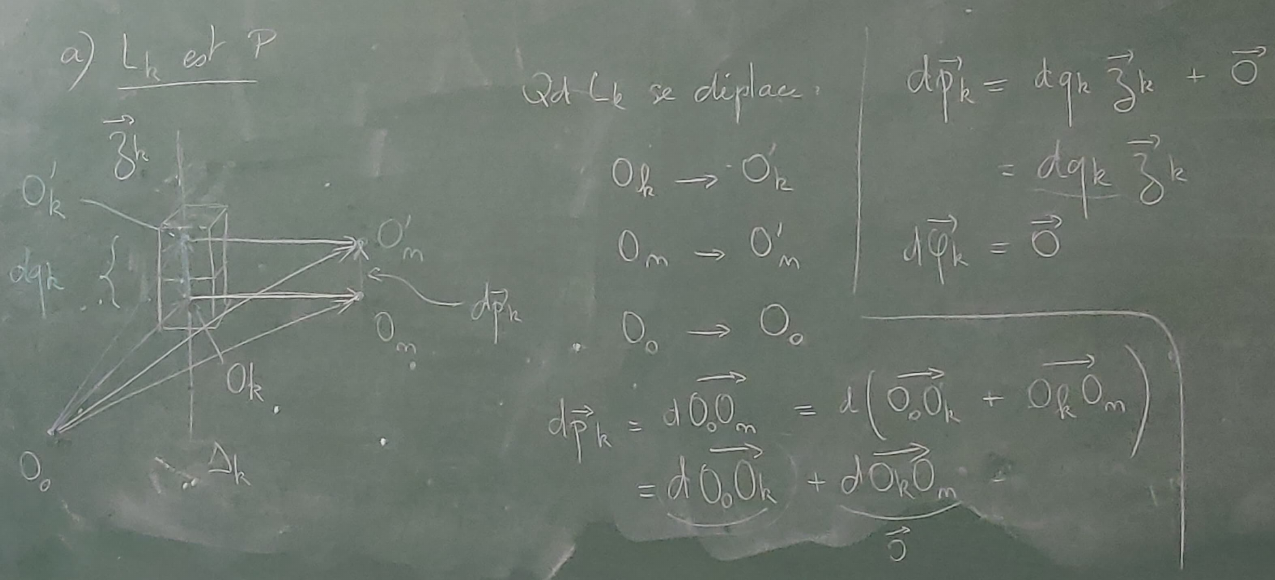 a) Lₖ est P
z⃗ₖ
O'ₖ
dqₖ {
O'ₘ
dp⃗ₖ
Oₘ
Oₖ
O₀
Δₖ
Qd Lₖ se déplace :
Oₖ → O'ₖ
Oₘ → O'ₘ
O₀ → O₀
dp⃗ₖ = d\overrightarrow{O₀Oₘ} = d(\overrightarrow{O₀Oₖ} + \overrightarrow{OₖOₘ})
= d\overrightarrow{O₀Oₖ} + d\overrightarrow{OₖOₘ}
0⃗
dp⃗ₖ = dqₖ z⃗ₖ + 0⃗
= dqₖ z⃗ₖ
dφ⃗ₖ = 0⃗